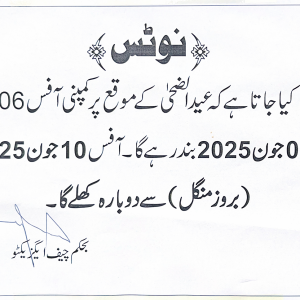 نوٹس
کیا جاتا ہے کہ عیدالضحیٰ کے موقع پر کمپنی آفس 06
0 جون 2025 بند رہے گا۔ آفس 10 جون 25
(بروز منگل) سے دوبارہ کھلے گا۔
بحکم چیف ایگزیکٹو